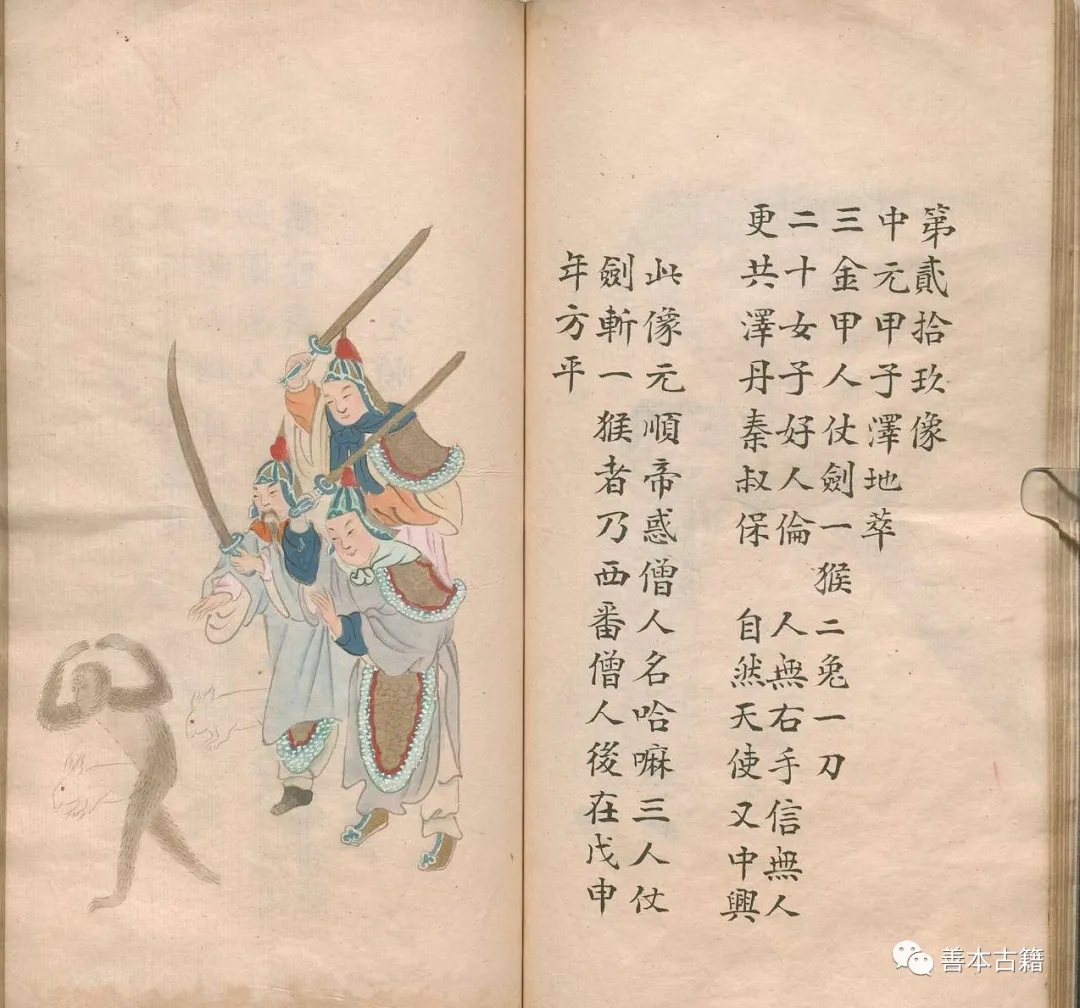 第貳拾玖像
中元甲子澤地萃
三金甲人仗劍一猴二兔一刀
二十女子好人倫 人無右手信無人
更共澤丹秦叔保 自然天使又中興
此像元順帝惑僧人名哈嘛三人仗
劍斬一猴者乃西番僧人後在戊申
年方平
善本古籍